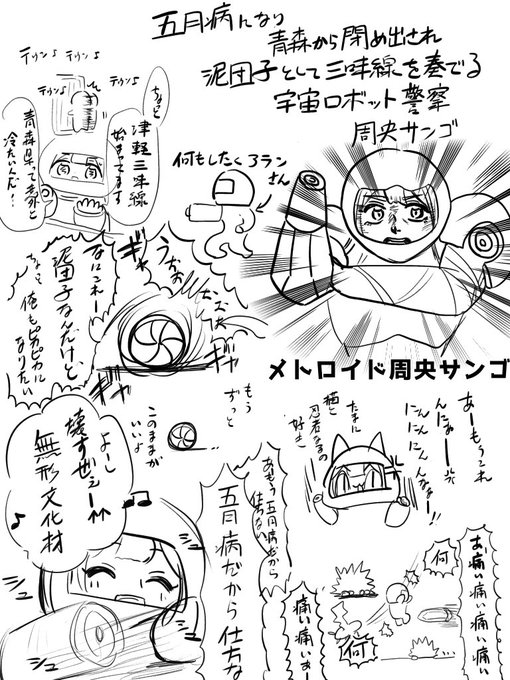 五月病になり
青森から閉め出され
泥団子として三味線を奏でる
宇宙ロボット警察
周央サンゴ
テケンテケン
テケン
テケン
ちょっと
津軽三味線
始まってます
青森県って意外と
冷たいんだ…
何もしたくねランさん
メトロイド周央サンゴ
うおお
おおお
ギャギャ
なにこれー
泥団子なんだけど
ちょっと俺もピカピカに
なりたい
もう
ずっと
このままが
いいよ
あーもうこれ
んにぁー
にんにんにんなぁー!!
たまに
猫と
忍者なの
好き
よし
壊すぜぇー
無形文化材
あもう五月病だから
仕方ない
五月病だから仕方な
お痛い痛い痛い痛い
何
何
痛い痛いおー
ジュー
ジュー